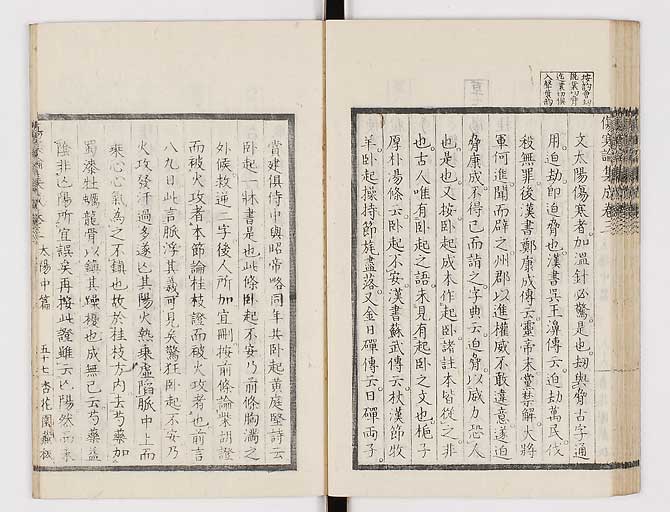 按韵會刼
訖業切脅
迄業切俱
入聲
傷寒論集成卷三
文太陽傷寒者加溫針必驚是也刼與脅古字通
用迫刼即迫脅也漢書吳王濞傳云迫刼萬民伐
殺無罪後漢書鄭康成傳云靈帝末黨禁解大將
軍何進聞而辟之州郡以進權威不敢違意遂迫
脅康成不得已而詣之字典云迫脅以威力恐人
也是也又按卧起成本作起卧諸註本皆從之非
也古人唯有卧起之語未見有起卧之文也梔子
厚朴湯條云卧起不安漢書蘇武傳云杖漢節牧
羊卧起操持節旄盡落又金日磾傳云日磾兩子
賞建俱侍中與昭帝略同年共卧起黄庭堅詩云
卧起一牀書是也此條卧起不安乃前條胸滿之
外候救逆二字後人所加宜刪按前條論柴胡證
而被火攻者本節論桂枝證而被火攻者也前言
八九日此言脈浮其義可見矣驚狂卧起不安乃
火攻發汗過多遂亡其陽火熱乘虛陷脈中上而
乘心心氣為之不鎮也故於桂枝方内去芍藥加
蜀漆牡蠣龍骨以鎮其躁擾也成無已云芍藥益
陰非亡陽所宜誤矣再按此證雖云亡陽然而未
太陽中篇 五十七 杏花園藏板